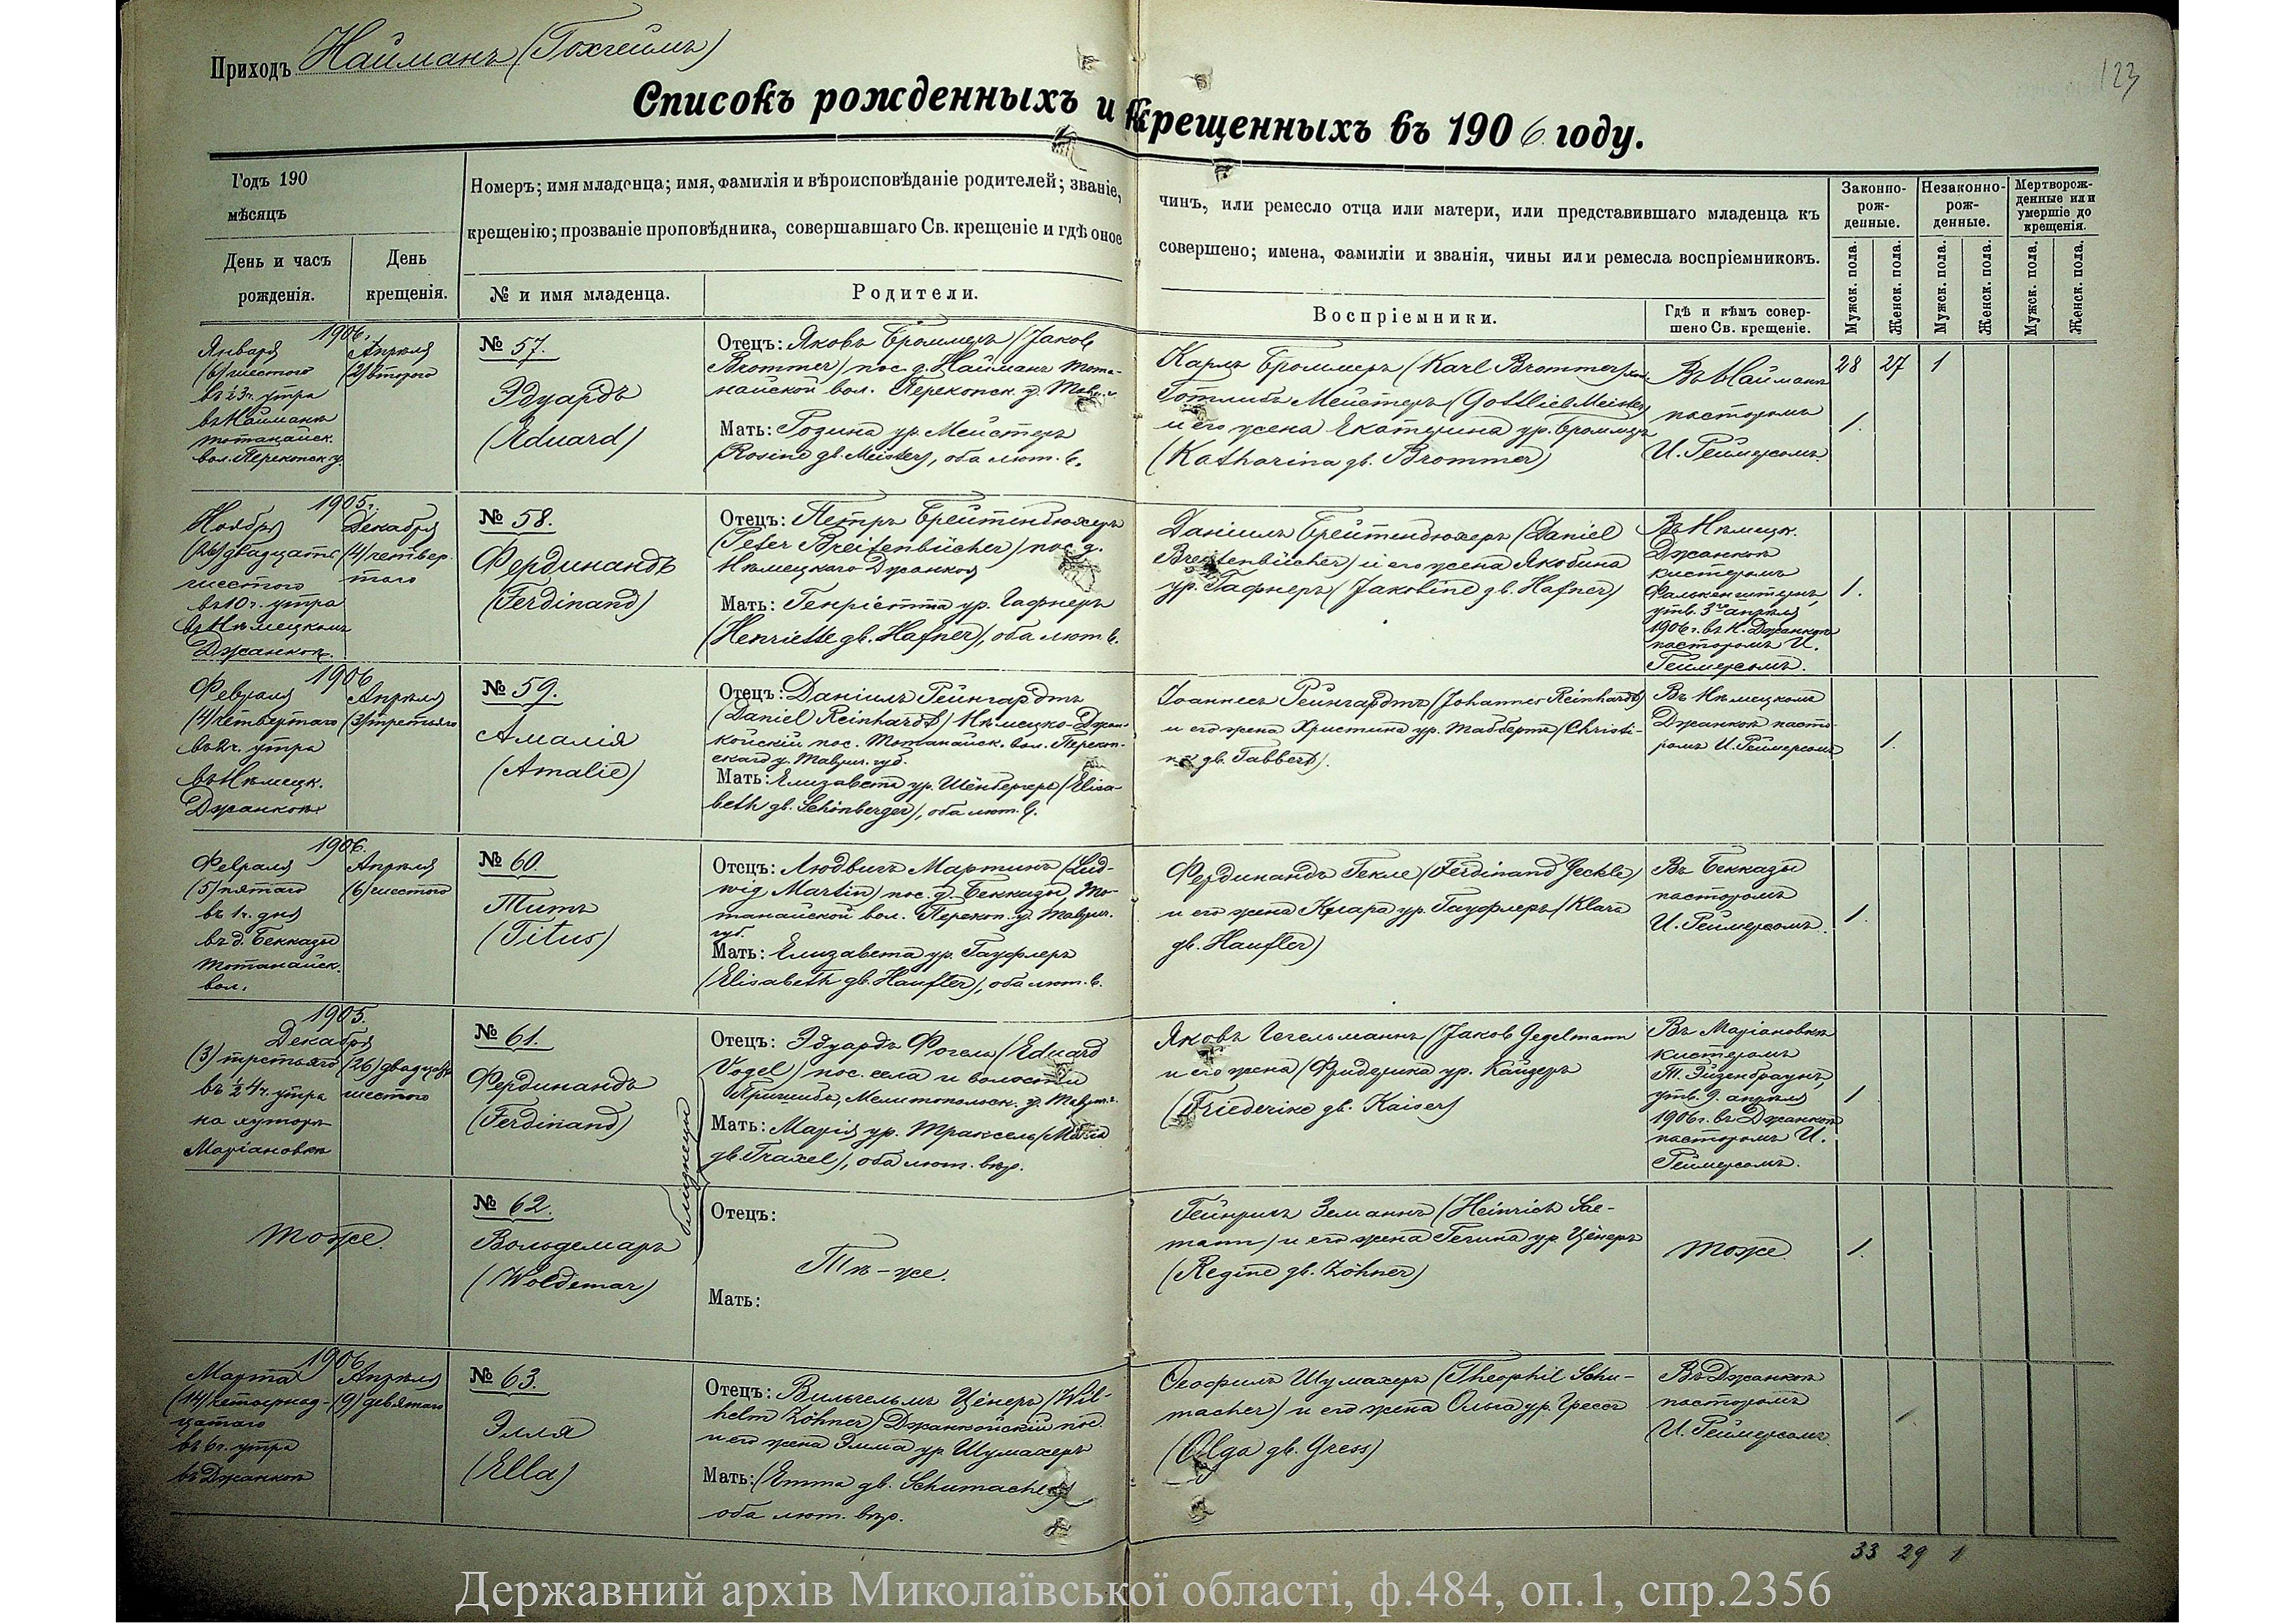 Приходъ Найманъ (Гохгеймъ)
123
Списокъ рожденныхъ и крещенныхъ въ 1906 году.
Годъ 190
мѣсяцъ
День и часъ
рожденія.
День
крещенія.
Номеръ; имя младенца; имя, фамилія и вѣроисповѣданіе родителей; званіе,
крещенію; прозваніе проповѣдника, совершавшаго Св. крещеніе и гдѣ оное
№ и имя младенца.
Родители.
чинъ, или ремесло отца или матери, или представившаго младенца къ
совершено; имена, фамиліи и званія, чины или ремесла воспріемниковъ.
Воспріемники.
Гдѣ и кѣмъ совер-
шено Св. крещеніе.
Законно-
рож-
денные.
Незаконно-
рож-
денные.
Мертворож-
денные или
умершіе до
крещенія.
Мужск. пола.
Женск. пола.
Мужск. пола.
Женск. пола.
Мужск. пола.
Женск. пола.
1906.
Января
(6) шестого
въ ½3ч. утра
въ Найманѣ
тотанайск.
вол. Перекопск. у.
Апрѣля
(2) второго
№ 57.
Эдуардъ
(Eduard)
Отецъ: Яковъ Броммеръ (Jakob
Brommer) пос. д. Найманъ Тота-
найской вол. Перекопск. у. Тавр. г.
Мать: Розина ур. Мейстеръ
(Rosine gb. Meister), оба лют. в.
Карлъ Броммеръ (Karl Brommer)
Готлибъ Мейстеръ (Gottlieb Meister)
и его жена Екатерина ур. Броммеръ
(Katharina gb. Brommer)
Въ Найманѣ
пасторомъ
И. Реймерсомъ.
28 27 1
1.
1905г.
Ноября
(26) двадцать
шестого
въ 10 ч. утра
въ Нѣмецкомъ
Джанкоѣ.
Декабря
(4) четвер-
таго
№ 58.
Фердинандъ
(Ferdinand)
Отецъ: Петръ Брейтенбюхеръ
(Peter Breitenbücher) пос. д.
Нѣмецкаго Джанкоя
Мать: Генріетта ур. Гафнеръ
(Henriette gb. Hafner), оба лют. в.
Даніилъ Брейтенбюхеръ (Daniel
Breitenbücher) и его жена Якобина
ур. Гафнеръ (Jakobine gb. Hafner)
Въ Нѣмецк.
Джанкоѣ
кистеромъ
Фалькенштернъ,
утв. 3го апрѣля
1906 г. въ Н. Джанкоѣ
пасторомъ И.
Реймерсомъ.
1.
1906
Февраля
(4) четвертаго
въ 2ч. утра
въ Нѣмецк.
Джанкоѣ
Апрѣля
(3) третьяго
№ 59.
Амалія
(Amalie)
Отецъ: Даніилъ Рейнгардтъ
(Daniel Reinhardt) Нѣмецко-Джан-
койскій пос. Тотанайск. вол. Перекоп-
скаго у. Таврич. губ.
Мать: Елизавета ур. Шёнбергеръ (Elisa-
beth gb. Schönberger), оба лют. в.
Іоаннесъ Рейнгардтъ (Johannes Reinhardt)
и его жена Христина ур. Табберт (Christi-
ne gb. Tabbert).
Въ Нѣмецкомъ
Джанкоѣ пасто-
ромъ И. Реймерсомъ
1.
1906.
Февраля
(5) пятаго
въ 1 ч. дня
въ д. Бекказы
Тотанайск.
вол.
Апрѣля
(6) шестого
№ 60.
Титъ
(Titus)
Отецъ: Людвигъ Мартинъ (Lud-
wig Martin) пос. д. Бекказы, То-
танайской вол. Перекоп. у. Таврич.
губ.
Мать: Елизавета ур. Гауфлеръ
(Elisabeth gb. Haufler), оба лют. в.
Фердинандъ Гекле (Ferdinand Geckle)
и его жена Клара ур. Гауфлеръ (Klara
gb. Haufler)
Въ Бекказы
пасторомъ
И. Реймерсомъ.
1.
1905.
Декабря
(3) третьяго
въ ½4ч. утра
на хуторѣ
Маріановкѣ
(26) двадцать
шестого
№ 61.
Фердинандъ
(Ferdinand)
близнецы
Отецъ: Эдуардъ Фогель (Eduard
Vogel) пос. села и волости
Пришибъ, Мелитопольск. у. Таврич. г.
Мать: Марія ур. Траксель (Maria
gb. Traxel), оба лют. вѣр.
Яковъ Гегельманнъ (Jakob Gegelmann
и его жена (Фридерика ур. Кайзеръ
(Friederike gb. Kaiser)
Въ Маріановкѣ
кистеромъ
Т. Эйзенбраунъ,
утв. 9. апрѣля
1906 г. въ Джанкоѣ
пасторомъ И.
Реймерсомъ.
1
тоже.
№ 62.
Вольдемаръ
(Woldemar)
Отецъ:
Тѣ-же.
Мать:
Гейнрихъ Земаннъ (Heinrich See-
mann) и его жена Регина ур. Цёнеръ
(Regine gb. Zöhner)
тоже
1.
1906
Марта
(14) четырнад-
цатаго
въ 6ч. утра
въ Джанкоѣ
Апрѣля
(9) девятаго
№ 63.
Элля
(Ella)
Отецъ: Вильгельмъ Цёнеръ (Wil-
helm Zöhner) Джанкойскій пос.
и его жена Эмма ур. Шумахеръ
Мать: (Emma gb. Schumacher)
оба лют. вѣр.
Ѳеофилъ Шумахеръ (Theophil Schu-
macher) и его жена Ольга ур. Грессъ
(Olga gb. Gress)
Въ Джанкоѣ
пасторомъ
И. Реймерсомъ.
33 29 1
Державний архів Миколаївської області, ф.484, оп.1, спр.2356